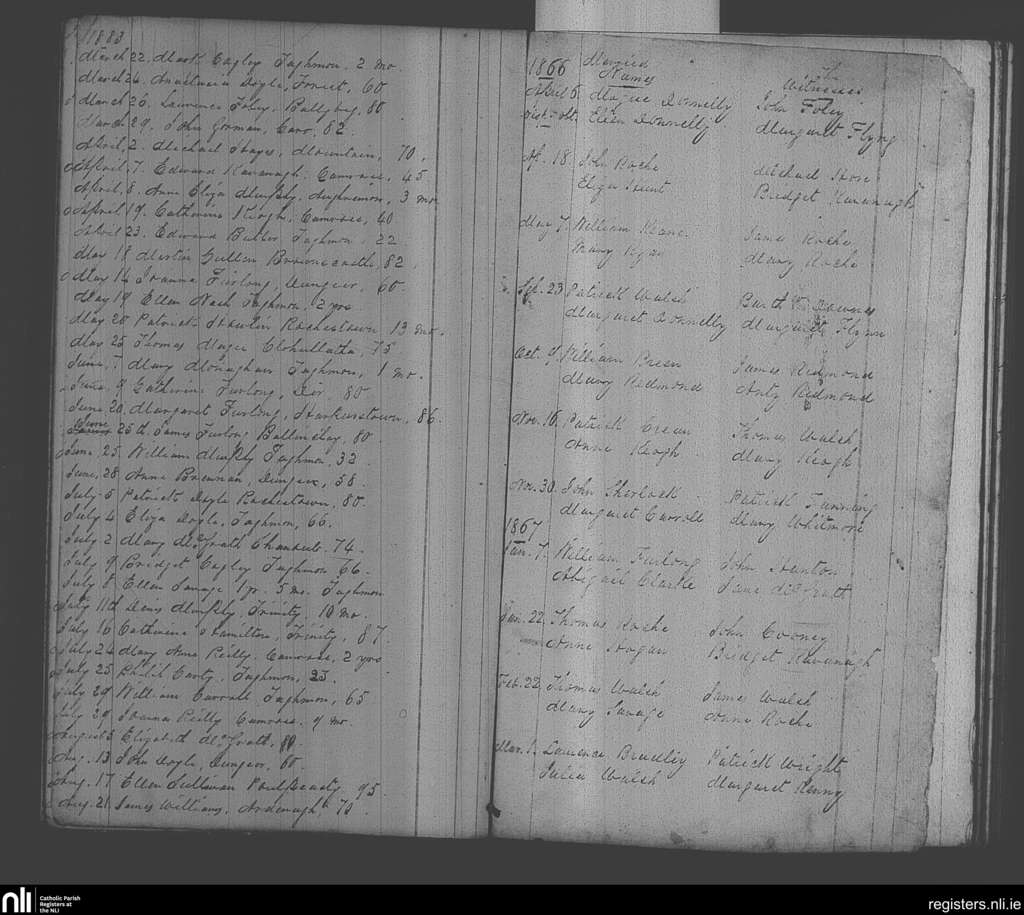 1883
March 22. Mark Cagley Taghmon. 2 mo
March 24. Anastasia Doyle, Forrest, 60
March 26. Laurence Foley, Ballybeg, 80
March 29. John Gorman, Carr, 82.
April, 2. Michael Hayes, Mountain, 70,
April, 7. Edward Kavanagh. Camross, 45
April, 8. Anne Eliza Murphy, Aughmon, 3 mo
April 19. Catherine Keogh, Camross, 40
April 23. Edward Butler Taghmon, 22.
May 18 Martin Cullen Browncastle, 82
May 16 Joanna Furlong, Dungeer, 60
May 19 Ellen Nash Taghmon. 2 yrs
May 20 Patrick Rochestown 13 mo.
May 25 Thomas Mager 75
June, 7 Mary Monaghan Taghmon, 1 mo.
June, 9 Catherine Furlong, 80
June 20, Margaret Furlong, Harkurstown, 86.
June 25th. James Furlong Ballinclay, 80
June, 25. William Murphy Taghmon, 32
June, 28 Anne Brennan, Dungeer, 58.
July 5 Patrick Doyle Rochestown, 80.
July 4 Eliza Doyle, Taghmon, 66.
July 2 Mary McGrath 74.
July 9 Bridget Cagley Taghmon 66.
July 8 Ellen Savage 1 yr. 5 mo. Taghmon
July 11th Denis Murphy, Trinity, 10 mo.
July 16 Catherine Hamilton, Trinity, 87.
July 24 Mary Anne Reilly. Camross, 2 yrs
July 25 Philip Carty. Taghmon, 25.
July 29 William Carroll Taghmon, 65
July 29 Joanna Reilly Camross. 9 mo.
August 5 Elizabeth McGrath, 80.
Aug. 13 John Doyle, Dungeer, 60.
Aug. 17 Ellen Sullivan Poulpeasty. 95.
Aug. 21 James Williams, Ardenagh, 75.
Married
1866 Names The Witnesses
April 5. Donnelly John Foley
Ellen Donnelly Margaret Flynn
Ap. 18. John Roche Michael Hore
Eliza Hunt Bridget Kavanagh
May 7. William Keane. James Roche,
Mary Ryan Mary Roche
Sep. 23 Patrick Walsh Barth. Downes
Margaret Donnelly Margaret Flynn
Oct. 9. William Breen James Redmond
Mary Redmond Anty Redmond
Nov. 16. Patrick Crean Thomas Walsh
Anne Keogh Mary Keogh
Nov. 30. John Sherlock Patrick Funning
Margaret Carroll Mary Whitmore
1867
Jan. 7. William Furlong John Stanton
Abigail Clarke Jane McGrath
Jan. 22. Thomas Roche John Cooney
Anne Hogan Bridget Kavanagh
Feb. 22. Thomas Walsh James Walsh
Mary Savage Anne Roche
Mar. 1. Laurence Bradley Patrick Wright
Julia Walsh Margaret Kenny
nli Catholic Parish
Registers at
the NLI
registers.nli.ie